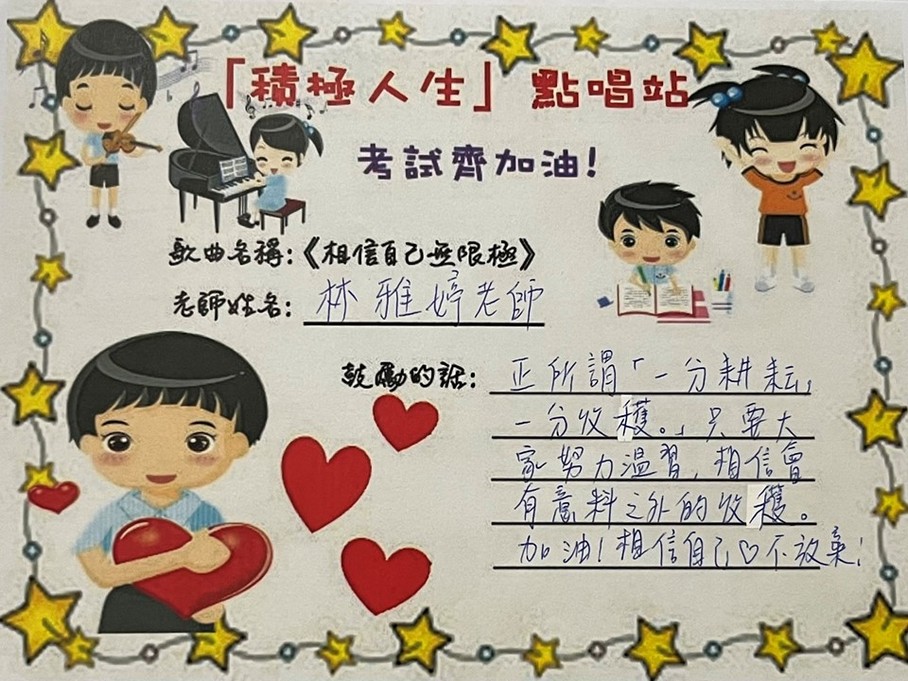 「積極人生」點唱站
考試齊加油！
歌曲名稱：《相信自己無限極》
老師姓名：林雅婷老師
鼓勵的話：正所謂「一分耕耘，
一分收穫。」只要大
家努力溫習，相信會
有意料之外的收穫。
加油！相信自己♡不放棄！